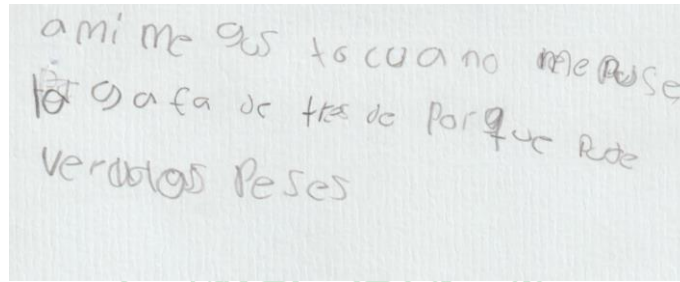 a mi me gus to cua no me puse
la gafa de tres de porque pude
ver a los peses